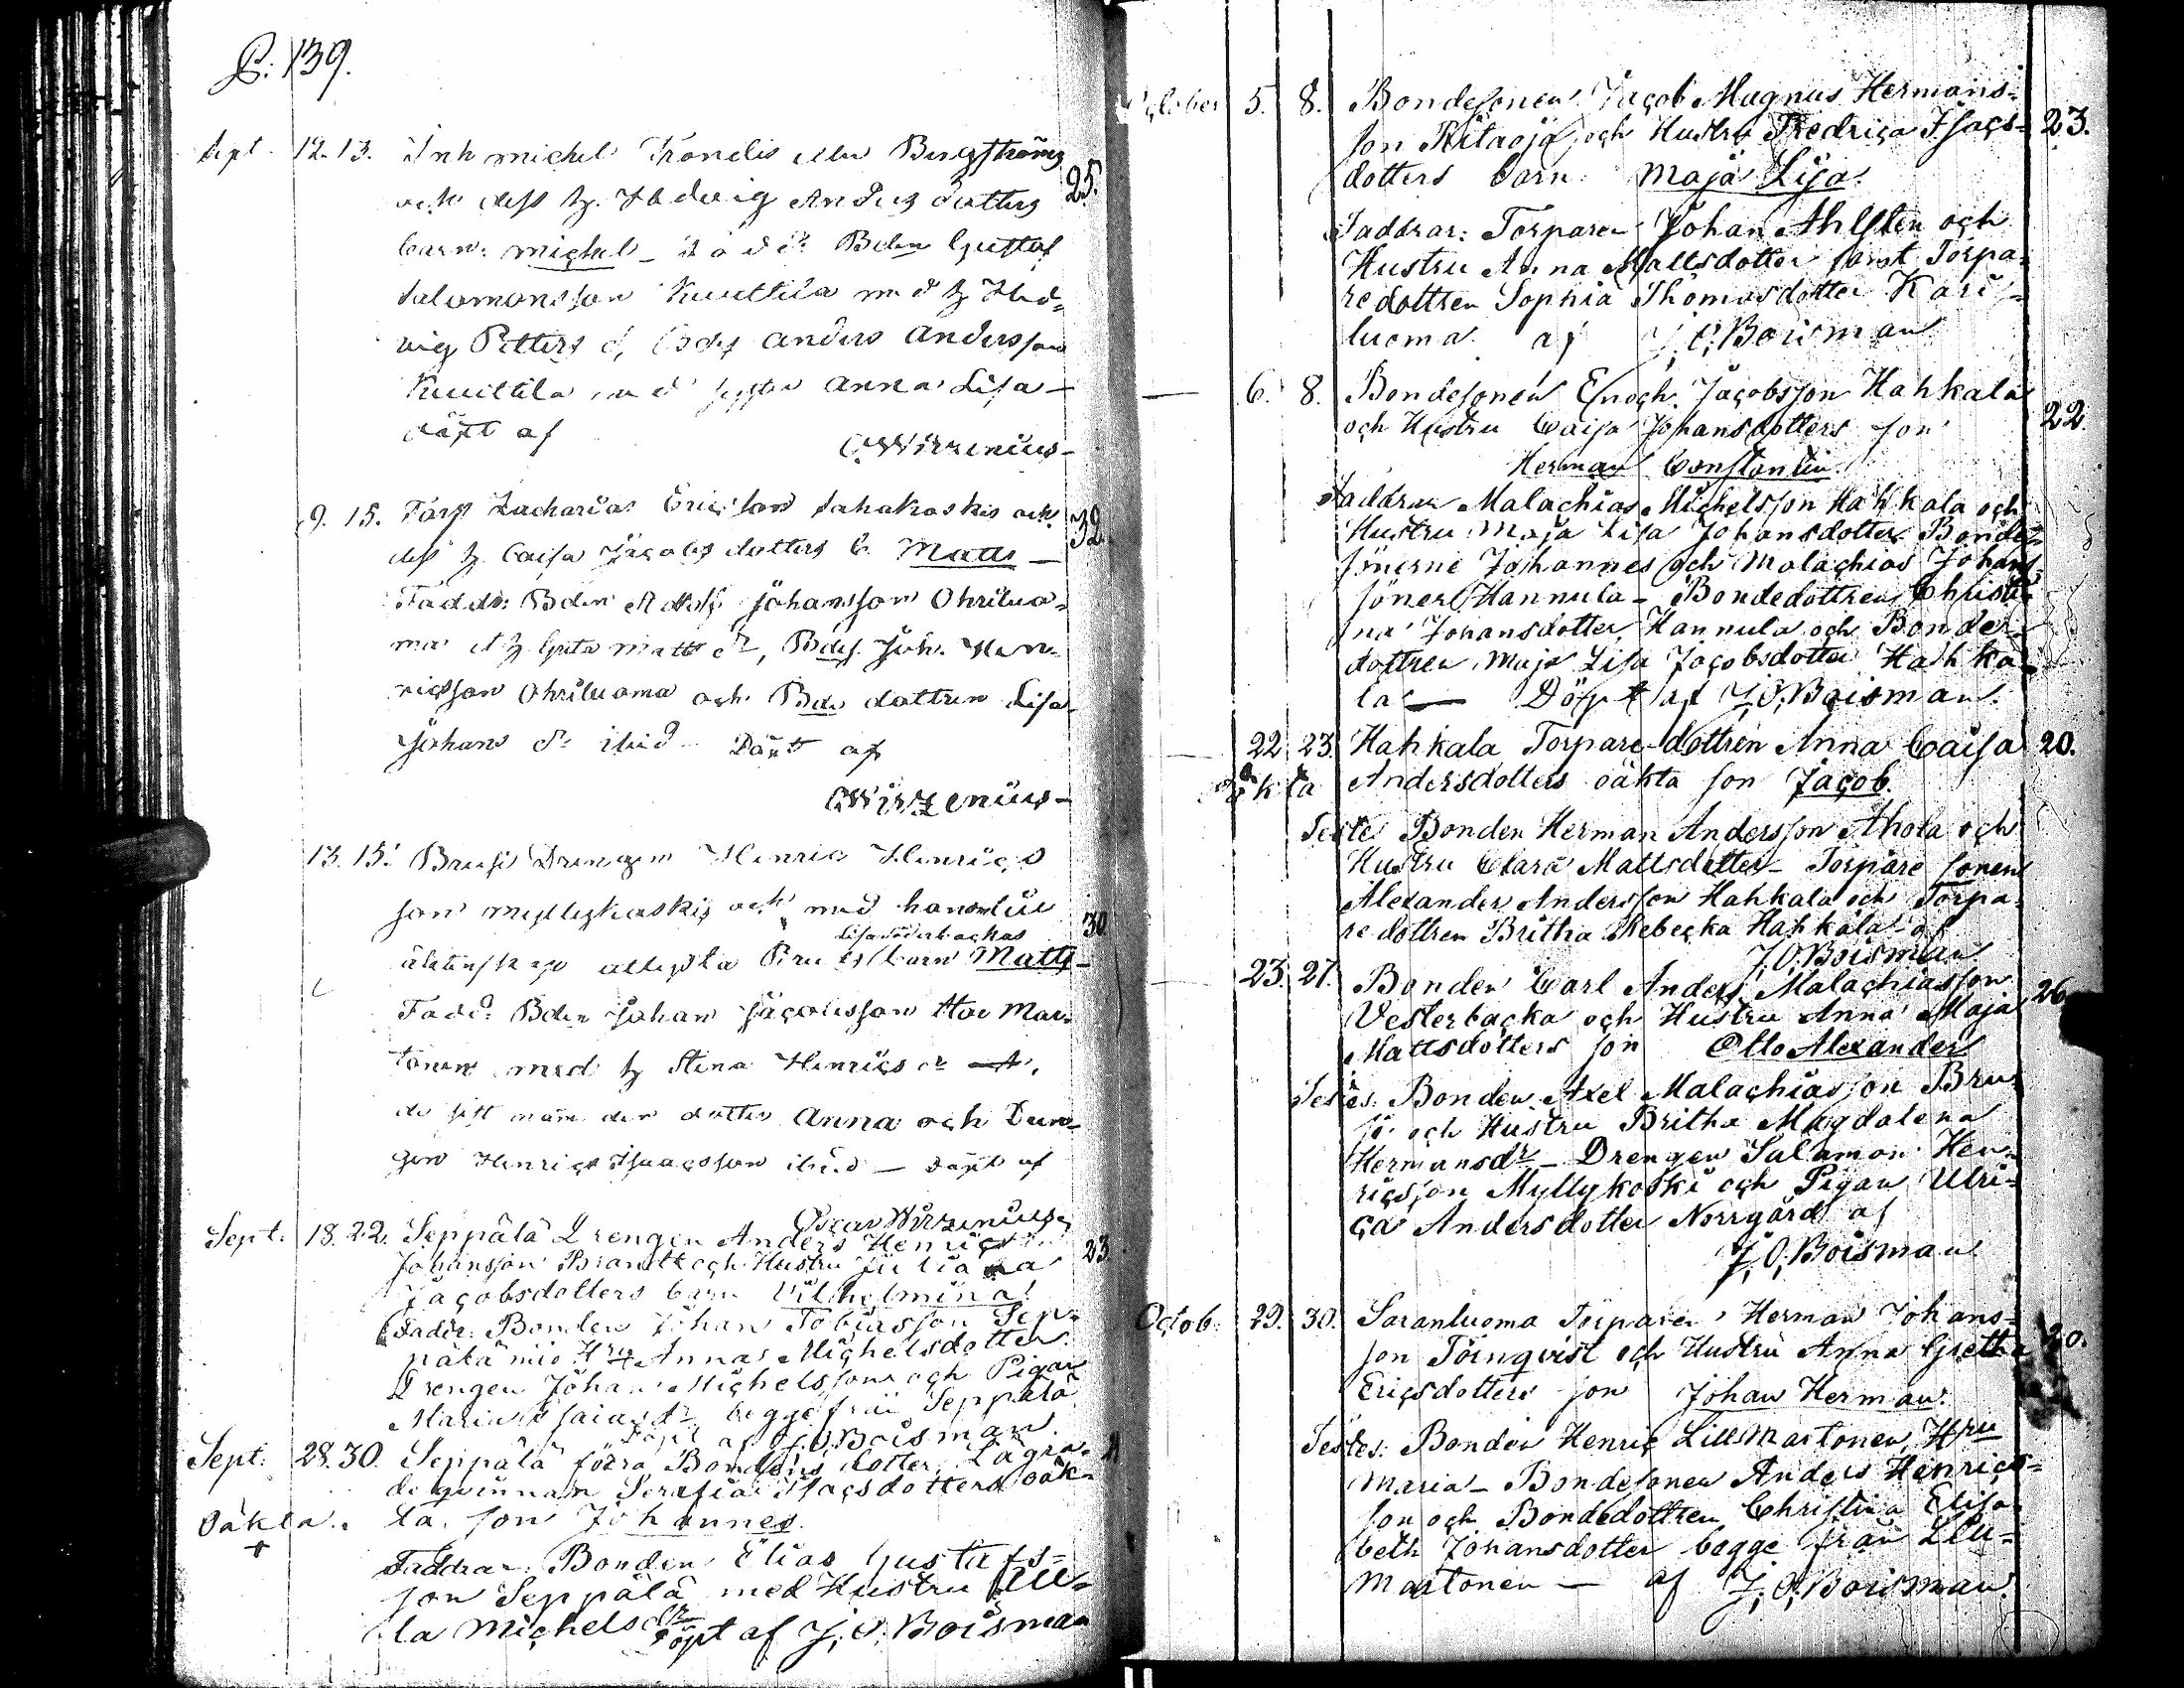 P. 139.
Sept. 12. 13. Inh michel Trondelis eller Bergströms
och dess h. Hedvig Anders dotters 25.
barn: michel _ Fadd: Bden Gustaf
Salomonsson Kuuttila med h Hed=
vig Petters d, Bds Anders Andersson
Kuuttila med syster Anna Lisa —
döpt af
C. Wirzenius –
9. 15. Torp Zacharias Ericsson Sahakoskis och 32
dess h Caisa Jacobs dotters b. Matts —
Fadd: Bden Adolf Johansson Ohriluo=
ma h Greta Matts dr, Bdes. Joh. Hen=
ricsson Ohriluoma och Bde dottren Lisa
Johans dr ibid — Döpt af
C. Wirzenius –
13. 15. Drengen Henric Henrics
son myllykoskis och med honom 30
Lisa Söderbackas
barn Matts –
Fadd: Bden Johan Jacobsson Mar=
tonen med h Stina Henrics dr
dotter Anna och Dren=
gen Henric Isaacsson ibid — Döpt af
Oscar Wirzenius
Sept. 18. 22. Seppälä Drengen Anders Henric 23
Johansson Brandt och Hustru Juliana
Jacobsdotters barn Vilhelmina!
Faddr: Bonden Johan Tobiasson Sep=
pälä Hru Anna Michelsdotter
Drengen Johan Michelsson och Pigan
Maria Esaiasdr begge från Seppälä
Döpt af J. O. Boisman.
Sept. 28. 30. Seppälä förra Bondens dotter, Lägra=
de qvinnan Serafia Isacsdotters oäk=
Oäkta. ta son Johannes.
+
Faddrar: Bonden Elias Gustafs=
son Seppälä med Hustru Ul=
la Michelsdr Döpt af J. O. Boisman
October 5. 8. Bondesonen Jacob Magnus Hermans=
son Ritaoja och Hustru Fredrica Isacs= 23.
dotters barn: Maja Lisa.
Faddrar: Torparen Johan Ahlsten och
Hustru Anna Mattsdotter samt Torpa=
redottren Sophia Thomasdotter Kari=
luoma. af J. O. Boisman
— 6. 8. Bondesonen Enoch Jacobsson Hahkala
och Hustru Caisa Johansdotters son 22.
Herman Constantin.
Faddrar Malachias Michelsson Hahkala och
Hustru Maja Lisa Johansdotter Bonde=
sönerne Johannes och Malachias Johans=
söner Hannula – Bondedottren Christi=
na Johansdotter Hannula och Bonde=
dottren Maja Lisa Jacobsdotter Hahka=
la — Döpt af J. O. Boisman.
— 22 23. Hahkala Torpare-dottren Anna Caisa 20.
oäkta Andersdotters oäkta son Jacob.
Teste Bonden Herman Andersson Ahola och
Hustru Clara Mattsdotter – Torpare sonen
Alexander Andersson Hahkala och Torpa=
re dottren Britha Rebecka Hahkala af
J. O. Boisman
— 23. 27. Bonden Carl Anders Malachiasson 26
Vesterbacka och Hustru Anna Maja
Mattsdotters son Otto Alexander
Testes: Bonden Axel Malachiasson Bru=
sö och Hustru Britha Magdalena
Hermansdr – Drengen Salomon Hen=
ricsson Myllykoski och Pigan Ulri=
ca Andersdotter Norrgård af
J. O. Boisman
Octob. 29. 30. Saranluoma Torparen Herman Johans=
son Törnqvist och Hustru Anna Gretha 20.
Ericsdotters son Johan Herman.
Testes: Bonden Henric Lillmartonen, Hru
Maria – Bondesonen Anders Henrics=
son och Bondedottren Christina Elisa=
beth Johansdotter begge från Lill=
martonen — af J. O. Boisman